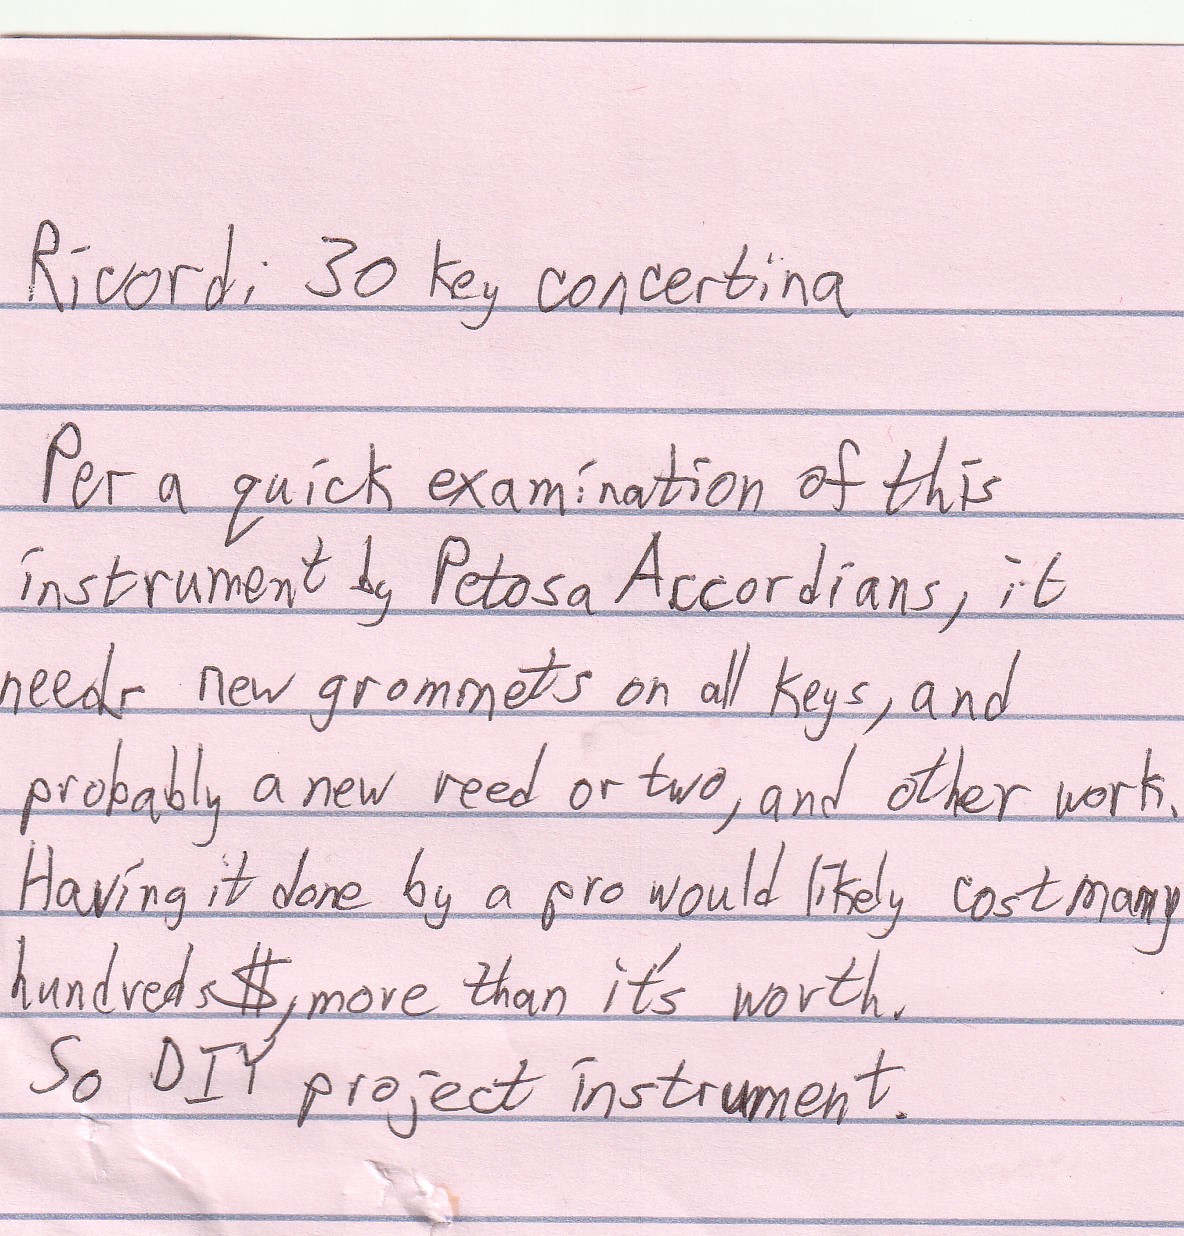 Ricordi 30 key concertina
Per a quick examination of this
instrument by Petosa Accordians, it
needs new grommets on all keys, and
probably a new reed or two, and other work.
Having it done by a pro would likely cost many
hundreds $, more than it's worth.
So DIY project instrument.